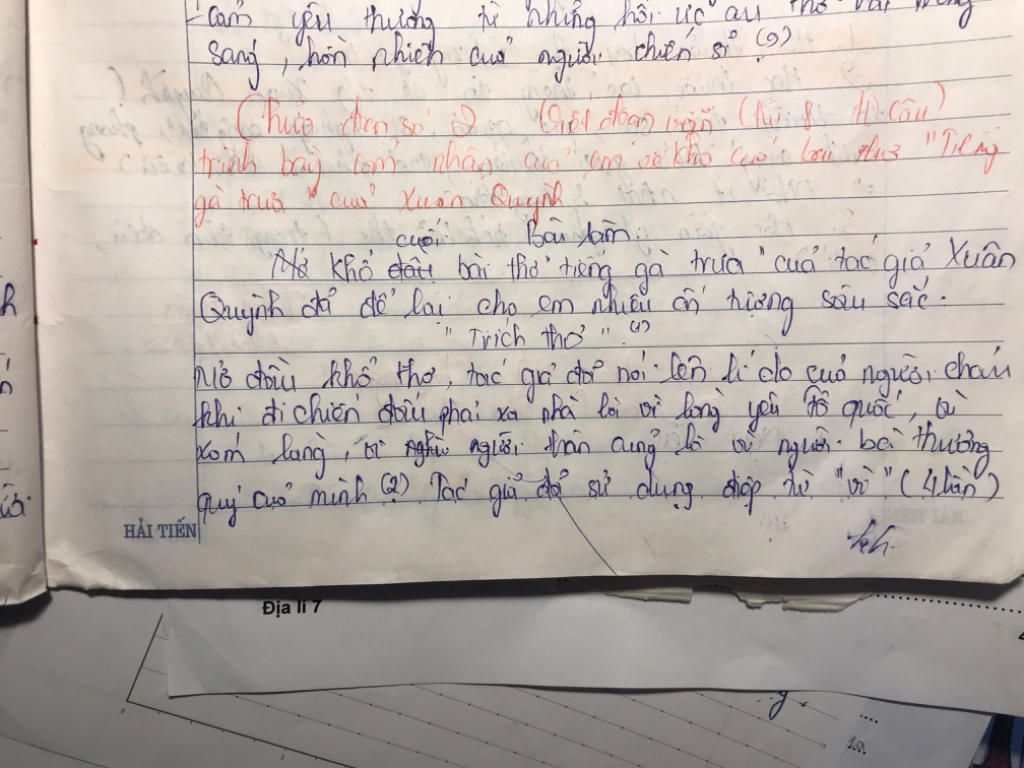 cảm yêu thương từ những hồi ức ấu thơ
sáng, hồn nhiên của người chiến sĩ (9)
đoạn số 2 đoạn văn 8 câu)
trình bày cảm nhận của em về khổ cuối bài thơ "Tiếng
gà trưa" của Xuân Quỳnh.
cuối Bài làm.
khổ đầu bài thơ "tiếng gà trưa" cuả tác giả Xuân
Quỳnh đã để lại cho em nhiều ấn tượng sâu sắc.
"Trích thơ" (1)
Mở đầu khổ thơ, tác giả đã nói lên lí do cuả người cháu
khi đi chiến đấu phải xa nhà là vì lòng yêu tổ quốc, vì
xóm làng, vì người thân cũng là vì người bà thương
quý cuả mình (2) Tác giả đã sử dụng điệp từ "vì" (4 lần)
HẢI TIẾN
Địa lí 7